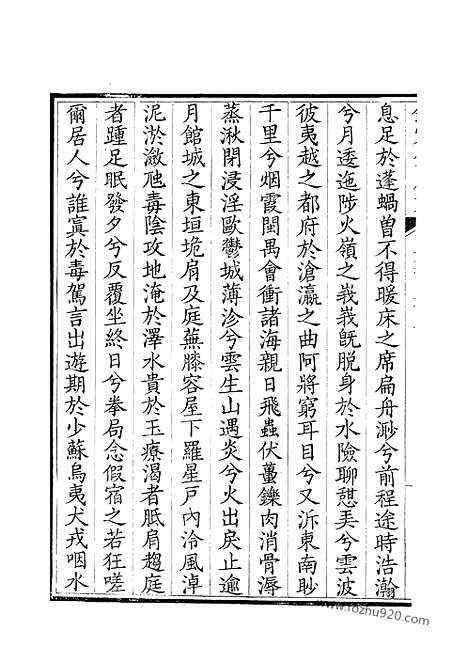 息足於蓬蝸曽不得暖床之席扁舟渺兮前程途時浩瀚
兮月逶迤陟火嶺之峩峩旣脱身於水險聊憇兮雲波
彼夷越之都府於滄瀛之曲阿將窮耳目兮又泝東南眇
千里兮烟霞閩禺會衝諸海親日飛蟲伏蠆鑠肉消骨溽
蒸湫閉浸淫歐鬱城薄沴兮雲生山遇炎兮火出戻止逾
月館城之東垣垝肩及庭蕪膝容屋下羅星戸内泠風淖
泥淤瀲虺毒陰攻地淹於澤水貴於玉療渴者胝肩趨庭
者踵足眠發夕兮反覆坐終日兮拳局念假宿之若狂嗟
爾居人兮誰寘於毒駕言出遊期於少蘇烏夷犬戎咽水
www.fozhu920.com